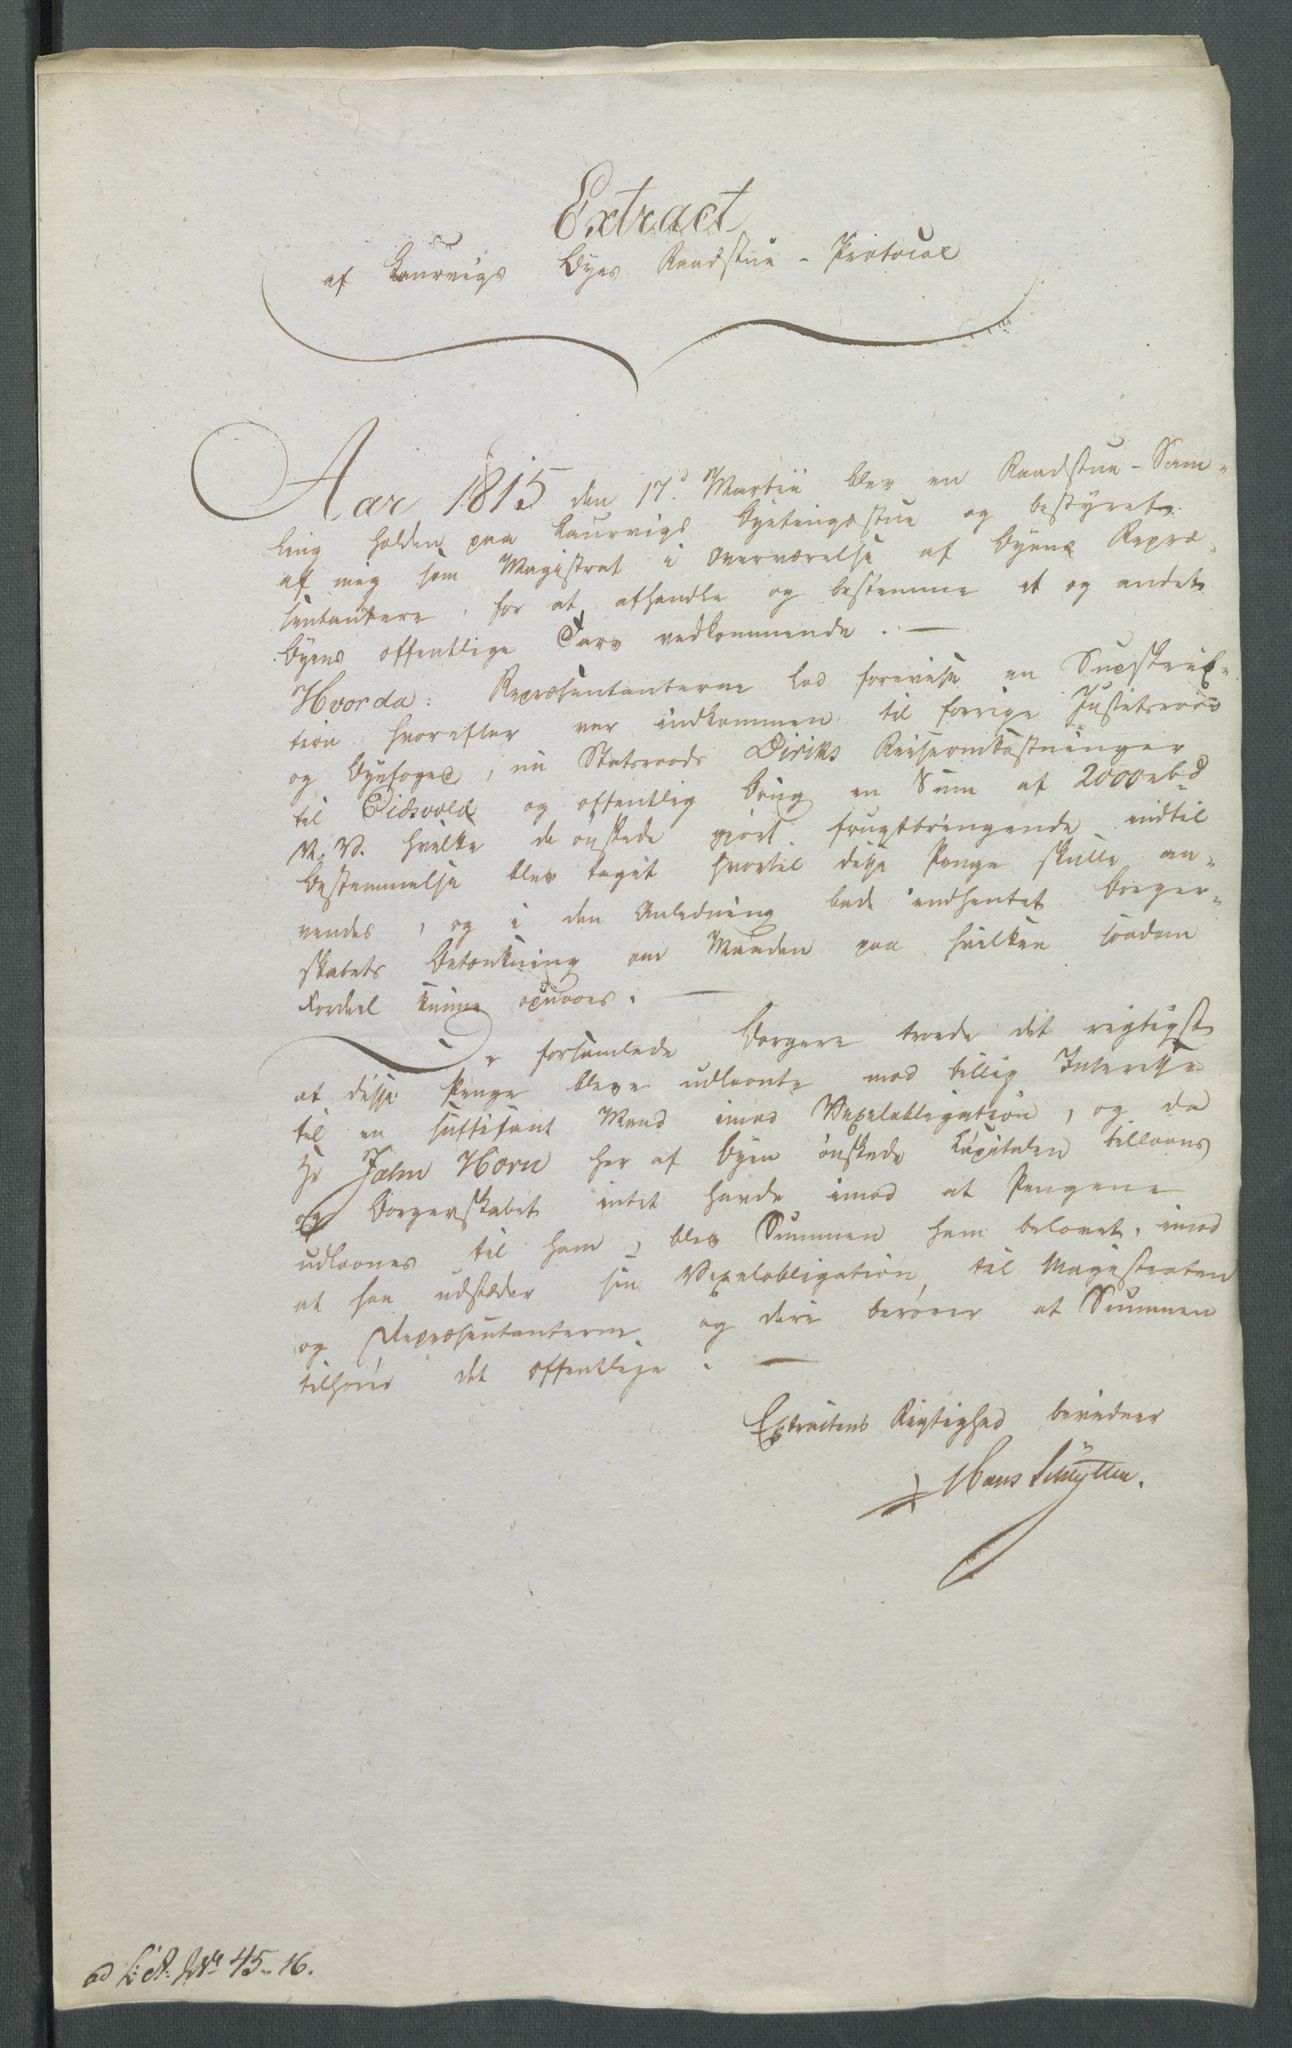 Extract
af Laurvigs Byes Raadstue-Protocol
Aar 1815 den 17.d Martii blev en Raadstue-Sam-
ling holden paa Laurvigs Byetingsstue og bestyret
af mig som Magistrat i Overværelse af Byens Repræ-
sentantere, for at afhandle og bestemme et og andet
Byens offentlige Tarv vedkommende. —
Hvorda: Repræsentanterne lod forevise en Supskrip-
tion hvorefter var indkommen til forrige Justitsraad
og Byefoged, nu Statsraads Diriks Reiseomkostninger
til Eidsvold og offentlig Brug en Sum af 2000 rbd
N. V. hvilke de ønskede gjort frugtbringende indtil
Bestemmelse blev taget hvortil disse Penge skulle an-
vendes, og i den Anledning bad indhentet Borger-
skabets Betænkning om Maaden paa hvilken saadan
Fordeel kunne opnaaes. —
De forsamlede Borgere troede det rigtigst
at disse Penge bleve udlaante mod billig Interesse
til en suffisant Mand imod Vexelobligation, og da
Hr Jahn Horn her af Byen ønskede Capitalen tillaans
og Borgerskabet intet havde imod at Pengene
udlaanes til ham, blev Summen ham belovet, imod
at han udstæder sin Vexelobligation til Magistraten
og Repræsentanterne og deri berører at Summen
tilhører det offentlige. —
Extractens Rigtighed bevidner
Hans Schütten.
ad L: A: No 45-16.